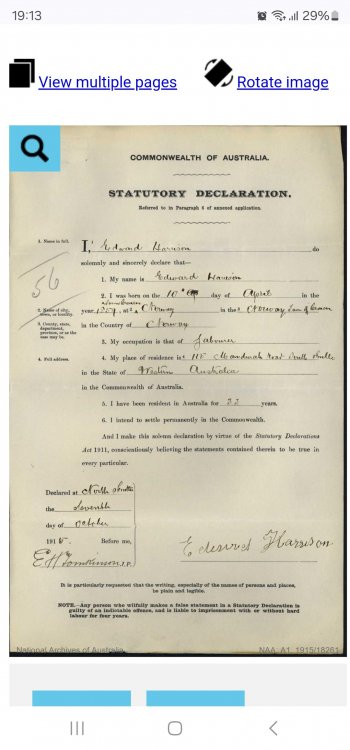 19:13
29%
View multiple pages
Rotate image
COMMONWEALTH OF AUSTRALIA.
STATUTORY DECLARATION.
Referred to in Paragraph 4 of annexed application.
1. Name in full.
I,¹ Edward Harrison do
solemnly and sincerely declare that—
56
1. My name is Edward Harrison
2. I was born on the 10th day of April in the
2. Name of city, town, or locality.
year, at ² Norway in the ³ Norway
3. County, state, department, province, or as the case may be.
in the Country of Norway
3. My occupation is that of Labourer
4. Full address.
4. My place of residence is ⁴ 115 Mandurah Road South
in the State of Western Australia
in the Commonwealth of Australia.
5. I have been resident in Australia for 33 years.
6. I intend to settle permanently in the Commonwealth.
And I make this solemn declaration by virtue of the Statutory Declarations
Act 1911, conscientiously believing the statements contained therein to be true in
every particular.
Declared at North
the Seventh
day of October
1915. Before me,
Edward Harrison
E H Tomkinson J.P.
It is particularly requested that the writing, especially of the names of persons and places,
be plain and legible.
NOTE.—Any person who wilfully makes a false statement in a Statutory Declaration is
guilty of an indictable offence, and is liable to imprisonment with or without hard
labour for four years.
National Archives of Australia
NAA: A1, 1915/18261